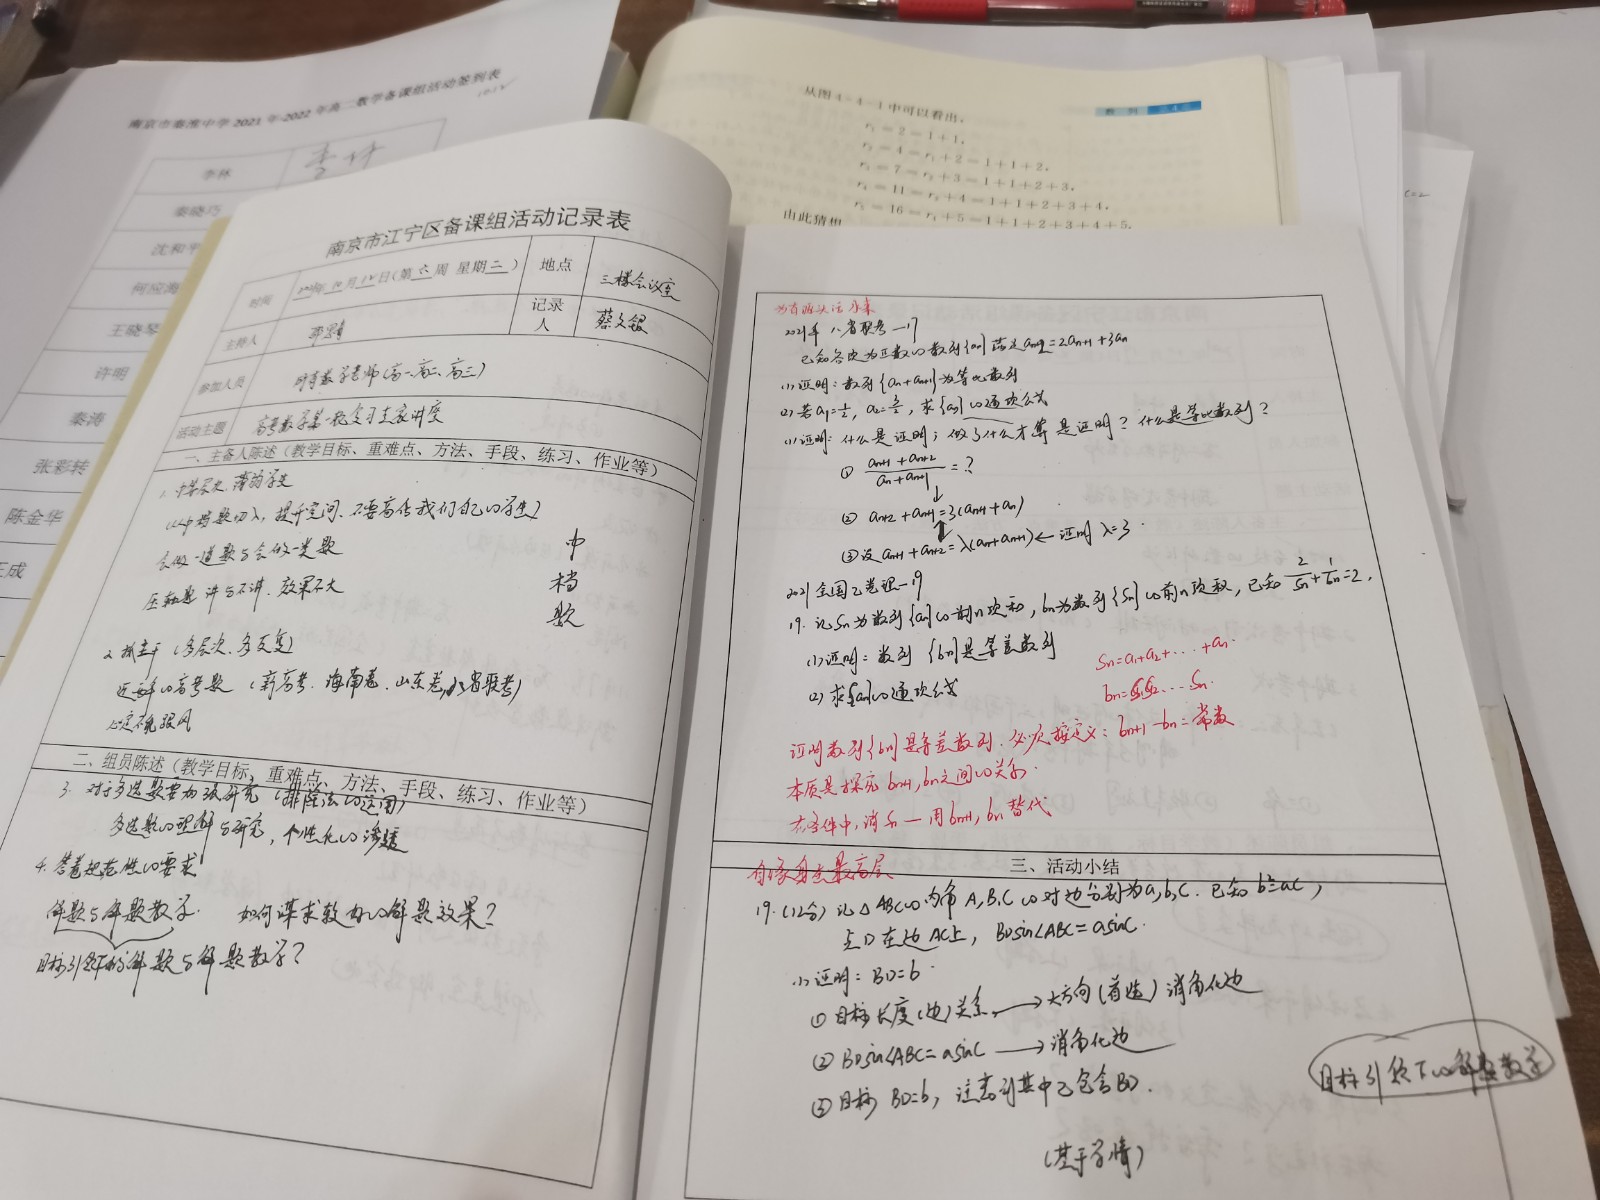 南京市秦淮中学2021年-2022年高二数学备课组活动签到表
李林
秦晓巧
沈和平
何应海
王晓琴
许明
秦涛
张彩转
陈金华
王成
从图4-4-1中可以看出,
数列
r₁=2=1+1,
r₂=4=r₁+2=1+1+2,
r₃=7=r₂+3=1+1+2+3,
r₄=11=r₃+4=1+1+2+3+4,
r₅=16=r₄+5=1+1+2+3+4+5.
由此猜想
南京市江宁区备课组活动记录表
时间 年 月 日(第六周 星期二) 地点 三楼会议室
主持人 记录人 蔡文银
参加人员 所有数学老师(高一、高二、高三)
活动主题 高考数学第一轮复习专家讲座
一、主备人陈述(教学目标、重难点、方法、手段、练习、作业等)
1. 中等层次, 薄弱学生
(从中档题切入, 提升空间、不要高估我们自己的学生)
会做一道题与会做一类题
压轴题 讲与不讲, 效果不大
中档题
2. 抓主干 (多层次、多反复)
近年的高考题 (新高考、海南卷、山东卷, 八省联考)
二、组员陈述(教学目标、重难点、方法、手段、练习、作业等)
3. 对于多选题要加强研究 (排除法的运用)
多选题的理解与研究, 个性化的渗透
4. 答卷规范性的要求
解题与解题教学. 如何谋求较好的解题效果?
目标引领下的解题与解题教学?
2021年 八省联考—17
已知各项为正数的数列{an}满足an+2=2an+1+3an
(1) 证明: 数列{an+an+1}为等比数列
(2) 若a1=1/2, a2=3/2, 求{an}的通项公式
(1) 证明: 什么是证明; 做了什么才算是证明? 什么是等比数列?
① (an+1+an+2)/(an+an+1)=?
② an+2+an+1=3(an+1+an)
③ 设an+1+an+2=λ(an+an+1)← 证明 λ=3.
2021全国乙卷理—19
19. 记Sn为数列{an}的前n项和, bn为数列{Sn}的前n项积, 已知2/Sn+1/bn=2.
(1) 证明: 数列{bn}是等差数列
(2) 求{an}的通项公式
Sn=a1+a2+...+an.
bn=S1S2...Sn.
证明数列{bn}是等差数列. 必须按定义: bn+1-bn=常数
本质是探究bn+1, bn之间的关系.
在条件中, 消Sn—用bn+1, bn替代
三、活动小结
19. (12分) 记△ABC的内角A,B,C的对边分别为a,b,c. 已知b²=ac,
点D在边AC上, BDsin∠ABC=asinC.
(1) 证明: BD=b.
① 目标 长度(边)关系, →大方向(首选) 消角化边
② BDsin∠ABC=asinC → 消角化边
③ 目标 BD=b, 注意到其中已包含BD.
目标引领下的解题教学
(基于学情)